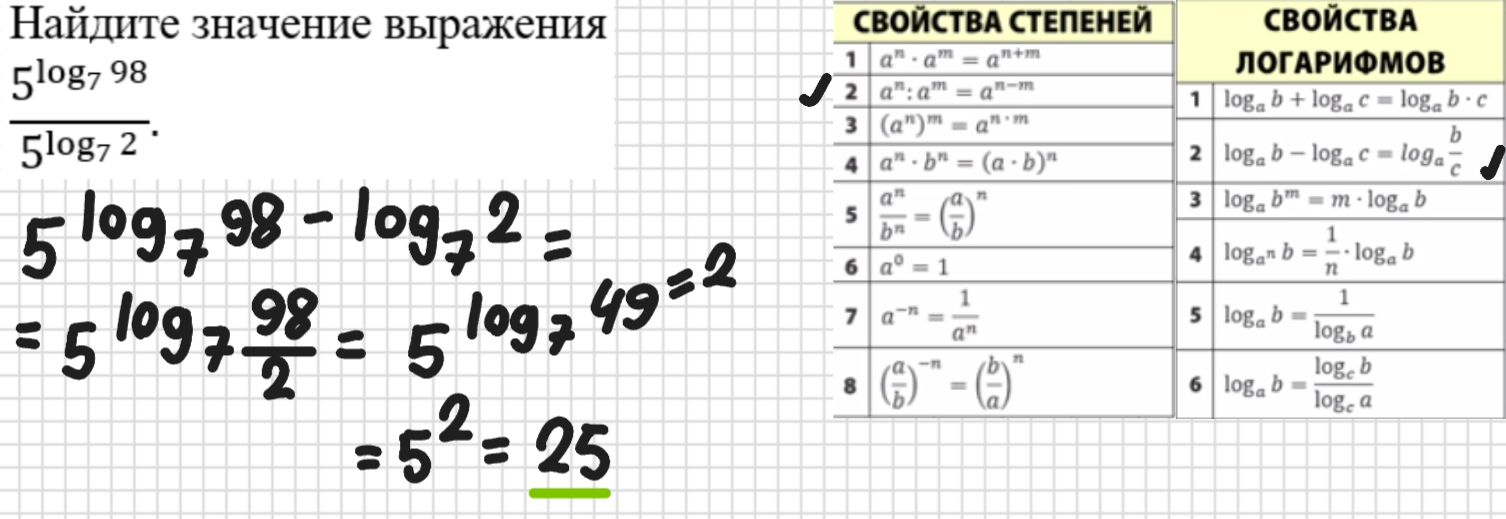 Найдите значение выражения
5^{log₇ 98}
5^{log₇ 2} .
5^{log₇ 98 − log₇ 2} =
= 5^{log₇ \frac{98}{2}} = 5^{log₇ 49 = 2}
= 5² = 25
СВОЙСТВА СТЕПЕНЕЙ
1 aⁿ · aᵐ = aⁿ⁺ᵐ
✓ 2 aⁿ : aᵐ = aⁿ⁻ᵐ
3 (aⁿ)ᵐ = a^{n·m}
4 aⁿ · bⁿ = (a · b)ⁿ
5 \frac{aⁿ}{bⁿ} = (\frac{a}{b})ⁿ
6 a⁰ = 1
7 a⁻ⁿ = \frac{1}{aⁿ}
8 (\frac{a}{b})⁻ⁿ = (\frac{b}{a})ⁿ
СВОЙСТВА
ЛОГАРИФМОВ
1 logₐ b + logₐ c = logₐ b · c
2 logₐ b − logₐ c = logₐ \frac{b}{c} ✓
3 logₐ bᵐ = m · logₐ b
4 log_{aⁿ} b = \frac{1}{n} · logₐ b
5 logₐ b = \frac{1}{log_b a}
6 logₐ b = \frac{log_c b}{log_c a}